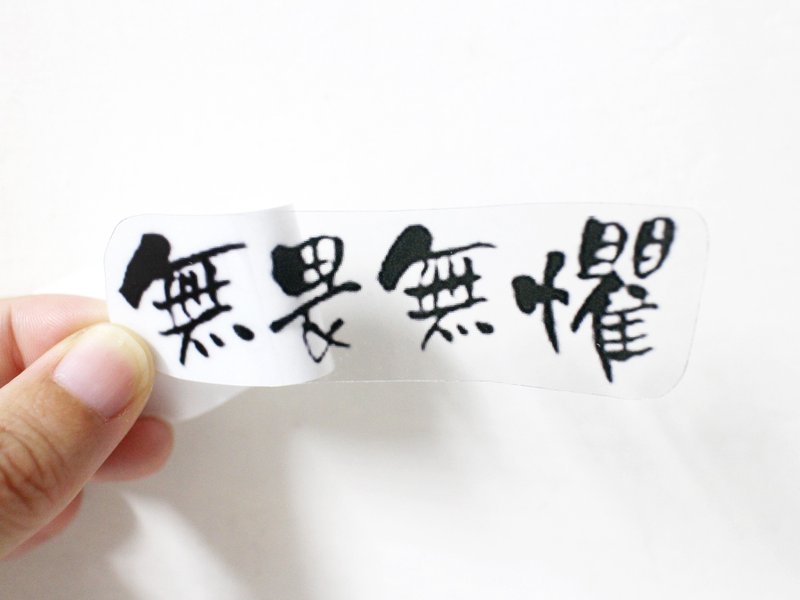 無畏無懼